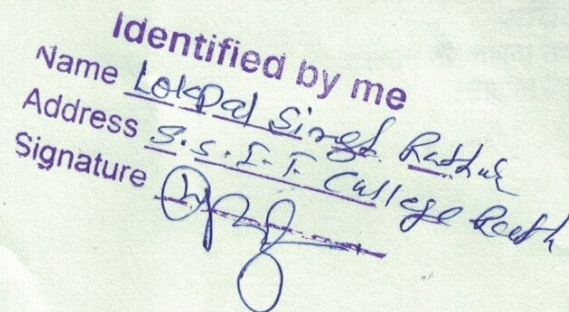 Identified by me
Name Lokpal Singh
Address S.S.I.T. College Rath
Signature